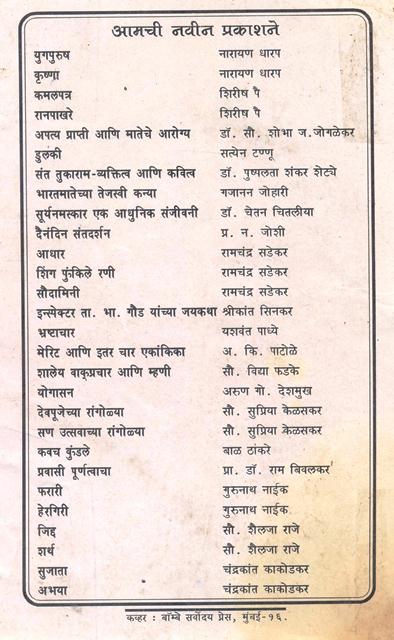 आमची नवीन प्रकाशने
युगपुरुष नारायण धारप
कृष्णा नारायण धारप
कमलपत्र शिरीष पै
रानपाखरे शिरीष पै
अपत्य प्राप्ती आणि मातेचे आरोग्य डॉ. सौ. शोभा ज.जोगळेकर
डुलकी सत्येन टण्णू
संत तुकाराम-व्यक्तित्व आणि कवित्व डॉ. पुष्पलता शंकर शेट्ये
भारतमातेच्या तेजस्वी कन्या गजानन जोहारी
सूर्यनमस्कार एक आधुनिक संजीवनी डॉ. चेतन चितलीया
दैनंदिन संतदर्शन प्र. न. जोशी
आधार रामचंद्र सडेकर
शिंग फुंकिले रणी रामचंद्र सडेकर
सौदामिनी रामचंद्र सडेकर
इन्स्पेक्टर ता. भा. गौड यांच्या जयकथा श्रीकांत सिनकर
भ्रष्टाचार यशवंत पाध्ये
मेरिट आणि इतर चार एकांकिका अ. कि. पाटोळे
शालेय वाक्‌प्रचार आणि म्हणी सौ. विद्या फडके
योगासन अरुण गो. देशमुख
देवपूजेच्या रांगोळ्या सौ. सुप्रिया केळसकर
सण उत्सवाच्या रांगोळ्या सौ. सुप्रिया केळसकर
कवच कुंडले बाळ ठांकरे
प्रवासी पूर्णत्वाचा प्रा. डॉ. राम बिवलकर
फरारी गुरुनाथ नाईक
हेरगिरी गुरुनाथ नाईक
जिद्द सौ. शैलजा राजे
शर्थ सौ. शैलजा राजे
सुजाता चंद्रकांत काकोडकर
अभया चंद्रकांत काकोडकर
कव्हर : बॉम्बे सर्वोदय प्रेस, मुंबई-१६.